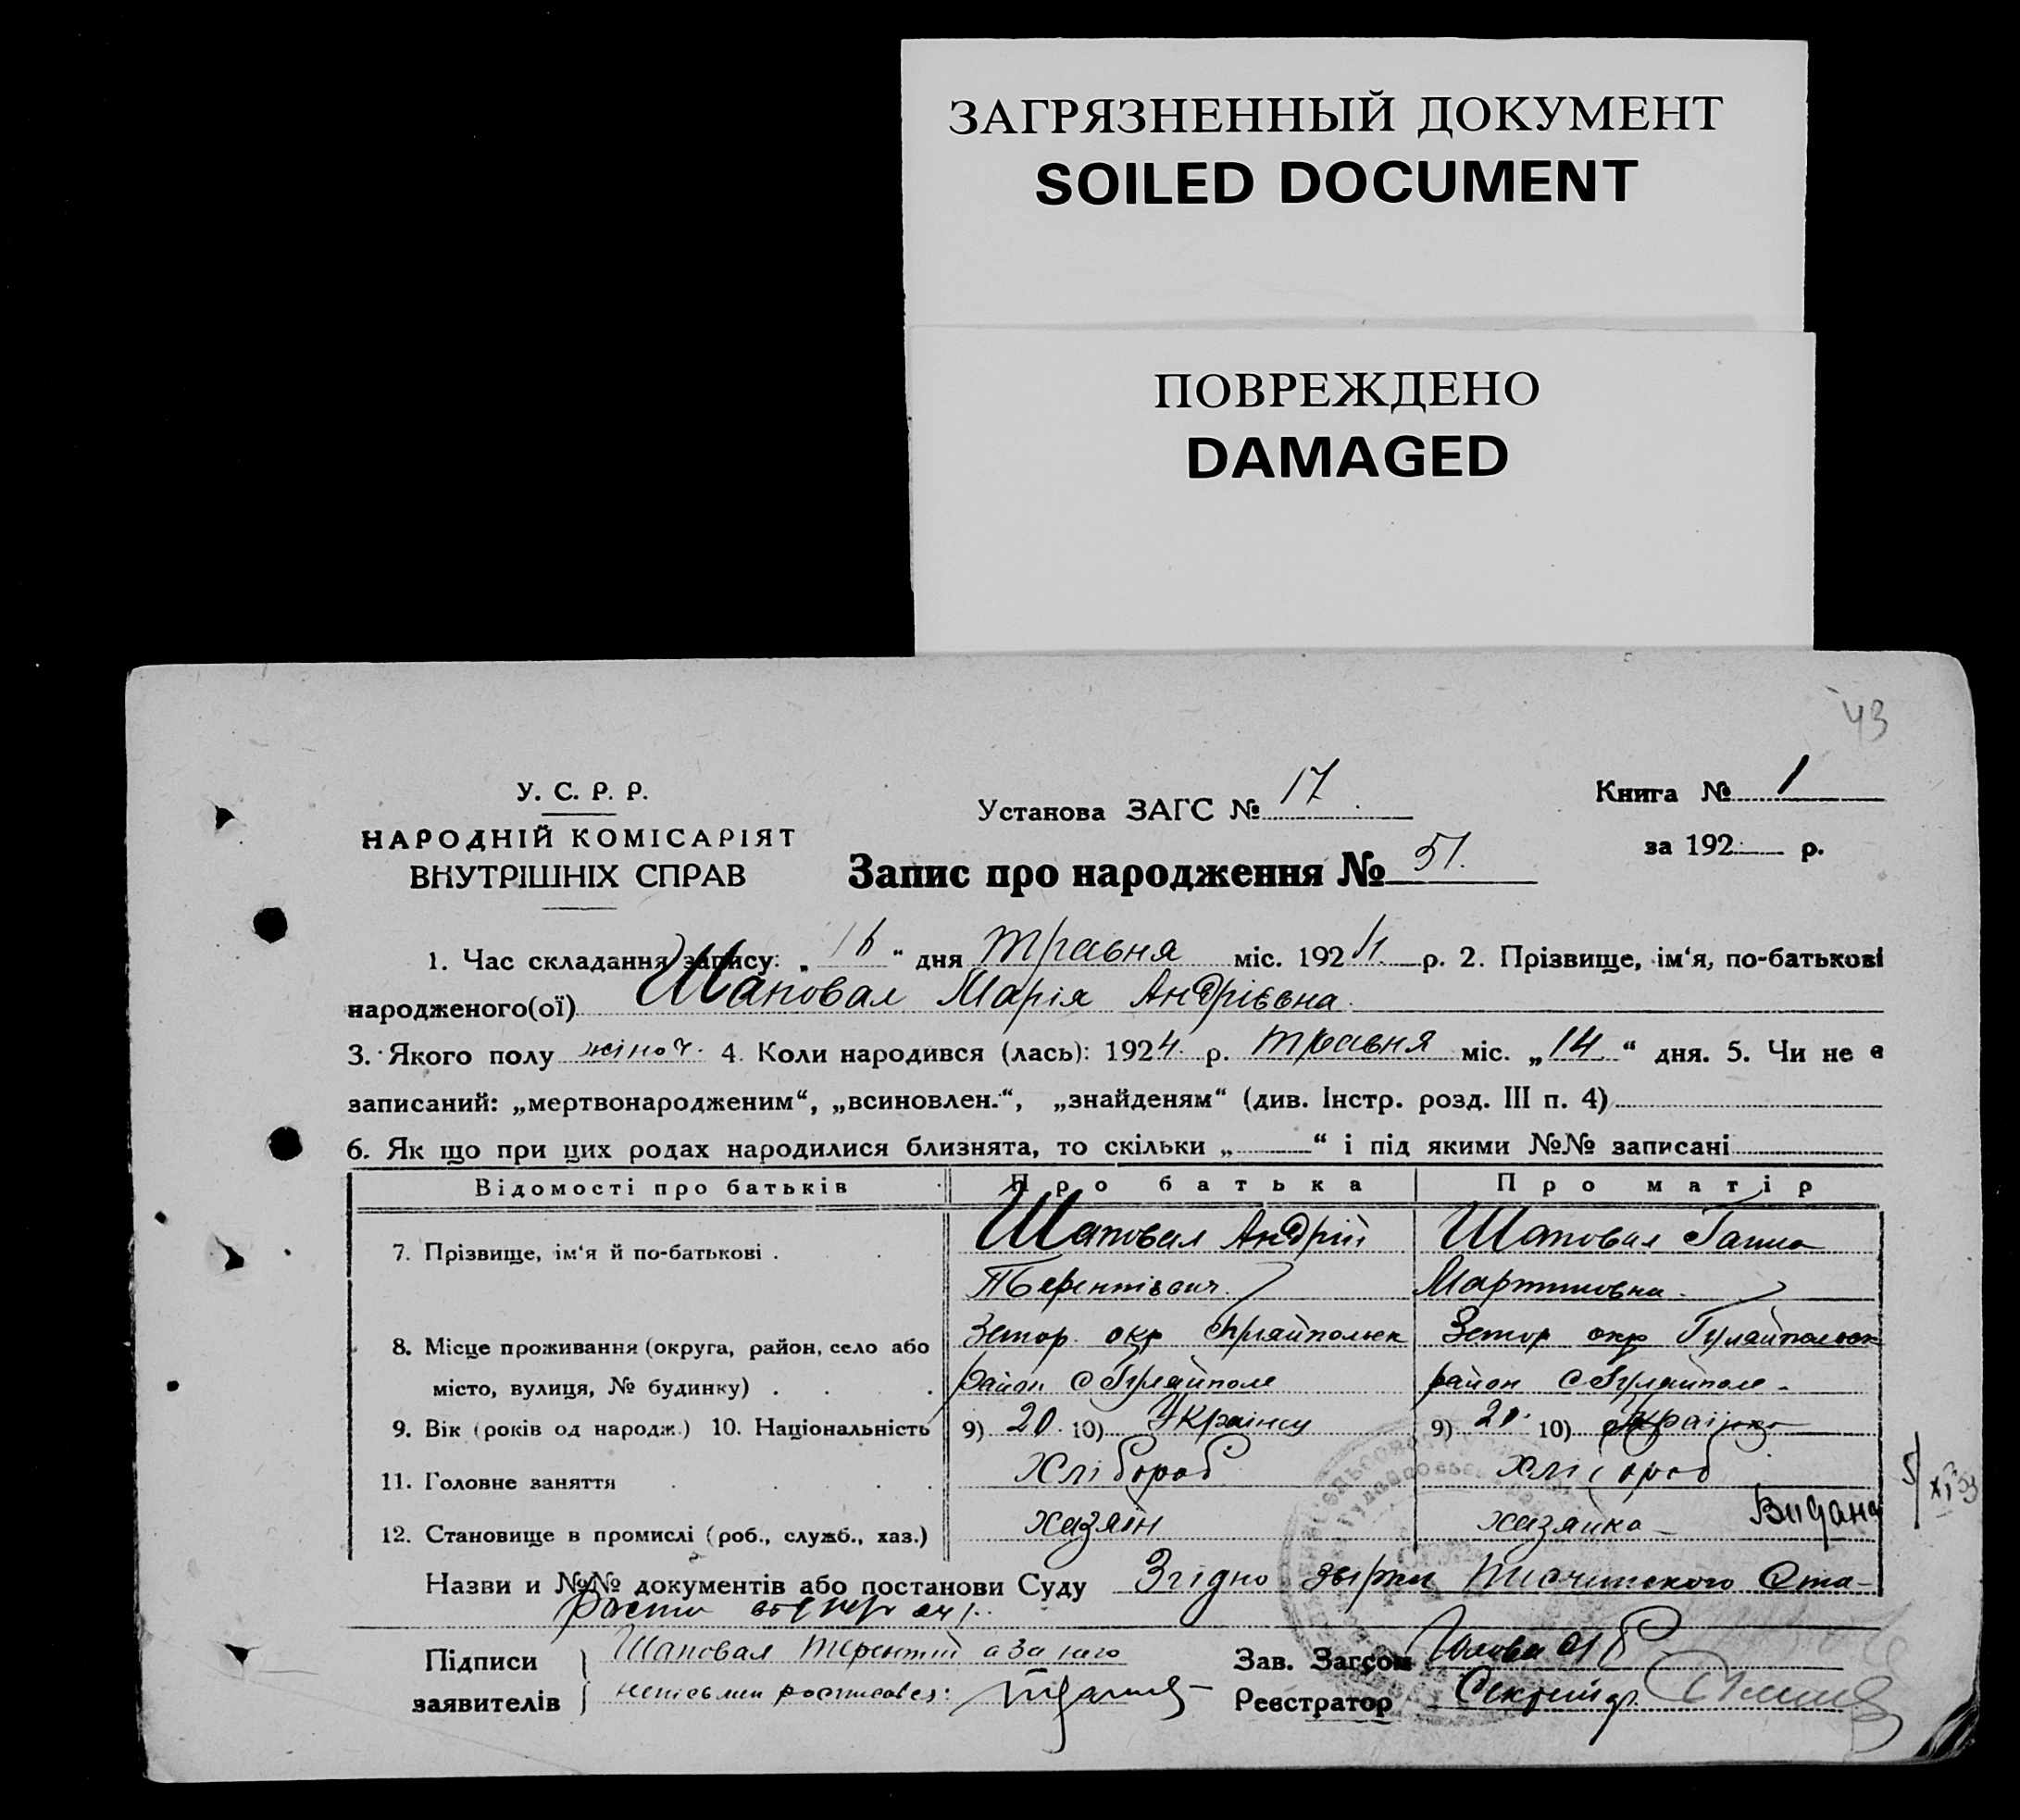 ЗАГРЯЗНЕННЫЙ ДОКУМЕНТ
SOILED DOCUMENT
ПОВРЕЖДЕНО
DAMAGED
43
У. С. Р. Р.
НАРОДНІЙ КОМІСАРІЯТ
ВНУТРІШНІХ СПРАВ
Установа ЗАГС № 17
Книга № 1
за 192 р.
Запис про народження № 51.
1. Час складання запису: „16“ дня травня міс. 1924 р. 2. Прізвище, ім‘я, по-батькові
народженого(ої) Шаповал Марія Андріевна
3. Якого полу жіноч. 4. Коли народився (лась): 1924 р. травня міс. „14“ дня. 5. Чи не є
записаний: „мертвонародженим“, „всиновлен.“, „знайденям“ (див. Інстр. розд. III п. 4)
6. Як що при цих родах народилися близнята, то скільки „ “ і під якими №№ записані
Відомості про батьків Про батька Про матір
7. Прізвище, ім‘я й по-батькові . Шаповал Андрій Шаповал Ганна
Терентієвич Мартиновна
8. Місце проживання (округа, район, село або Запор. окр Гуляйпольск Запор окр Гуляйпольск
місто, вулиця, № будинку) район с Гуляйполе район с Гуляйполе
9. Вік (років од народж.) 10. Національність 9) 20 10) Українец 9) 21 10) Українка
11. Головне заняття Хлібороб хлібороб
12. Становище в промислі (роб., служб., хаз.) хазяїн хазяйка Видана
Назви и №№ документів або постанови Суду Згідно
Підписи Шаповал Терентій а за його
заявителів неписьмен росписався:
Зав. Загсом Голова
Реєстратор Секретар